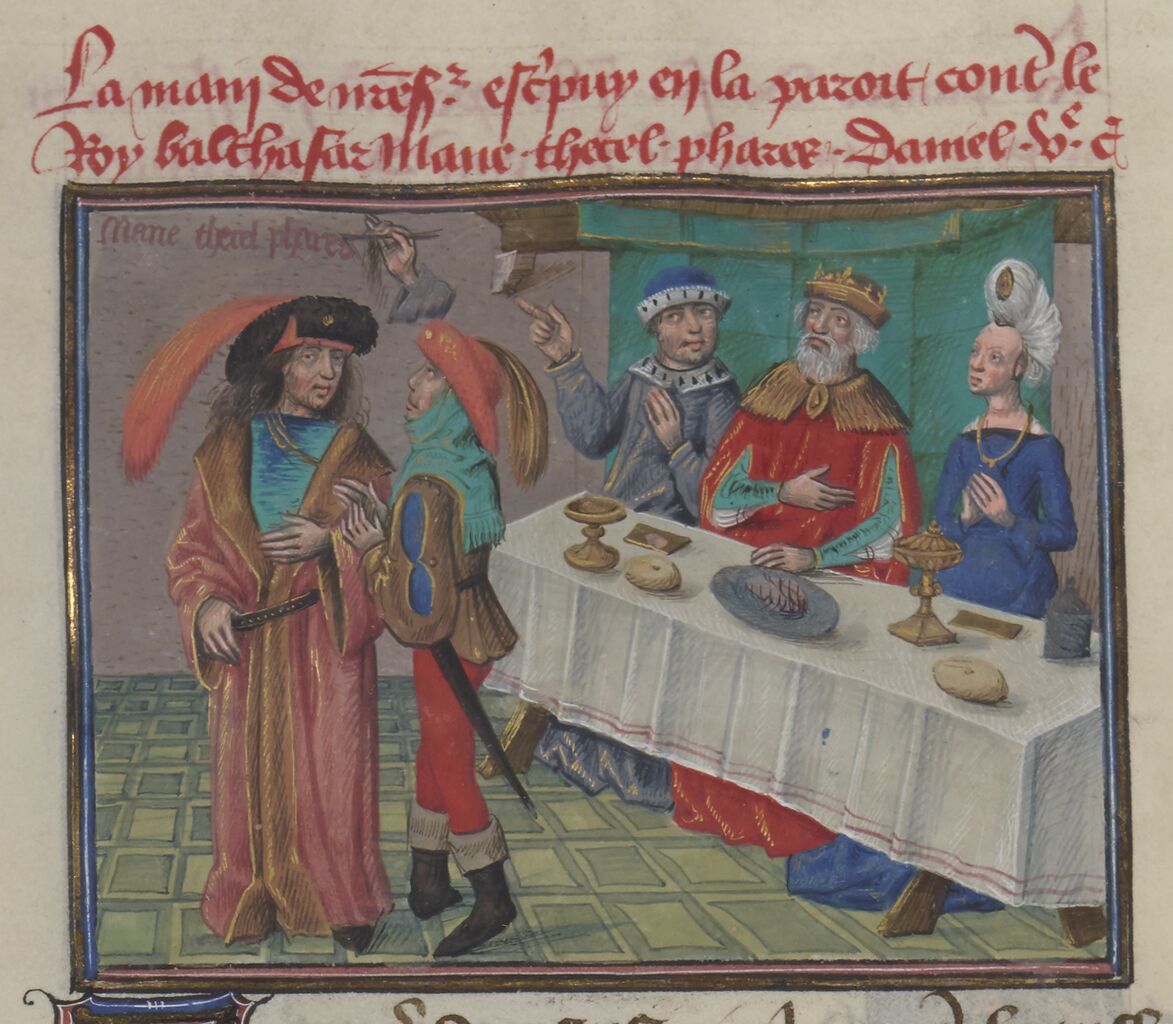 La main de nr̄e sr̄ escͥpuy en la paroit contr̄ le
Roy balthasar Mane · thecel · phares · Daniel · Vᵉ · c̄
Mane thecel phares